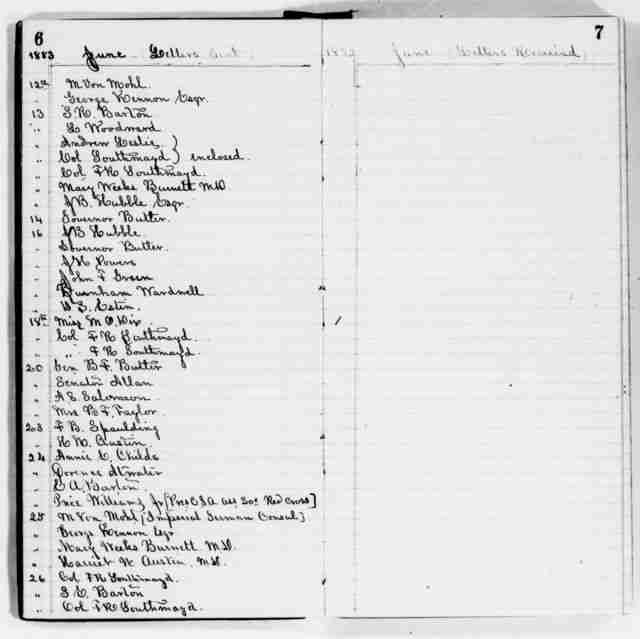 6
1883 June Letters Sent.
12th M Von Mohl.
" George Kennon Esqr.
13 S. R. Barton
" L Woodward
" Andrew Leslie }
" Col Southmayd } enclosed.
" Col F R Southmayd.
" Mary Weeks Burnett M D.
" J B. Hubble Esqr.
14 Governor Butler.
16 J B Hubble.
" Governor Butler.
" J H Powers
" John F Green
" Burnham Wardwell
" D. S.
18th Miss M. D. Dix
" Col F R Southmayd.
" " F R Southmayd
20 Gen B. F. Butler
" Senator Allan
" A S Salomson
" Mrs B. F. Taylor.
23 F. B. Spaulding
" H. N. Austin.
24 Annie C. Childs
" Dorence Atwater
" C A. Barton
" Price Williams, Jr [Pres C & A ass Soc Red Cross]
25 M Von Mohl [Imperial German Consul]
" George Kennon Esqr
" Mary Weeks Burnett M.D.
" Harriet N Austin, M.D.
26 Col F R Southmayd.
" S. E. Barton
" Col F R Southmayd.
7
June (Letters Received)